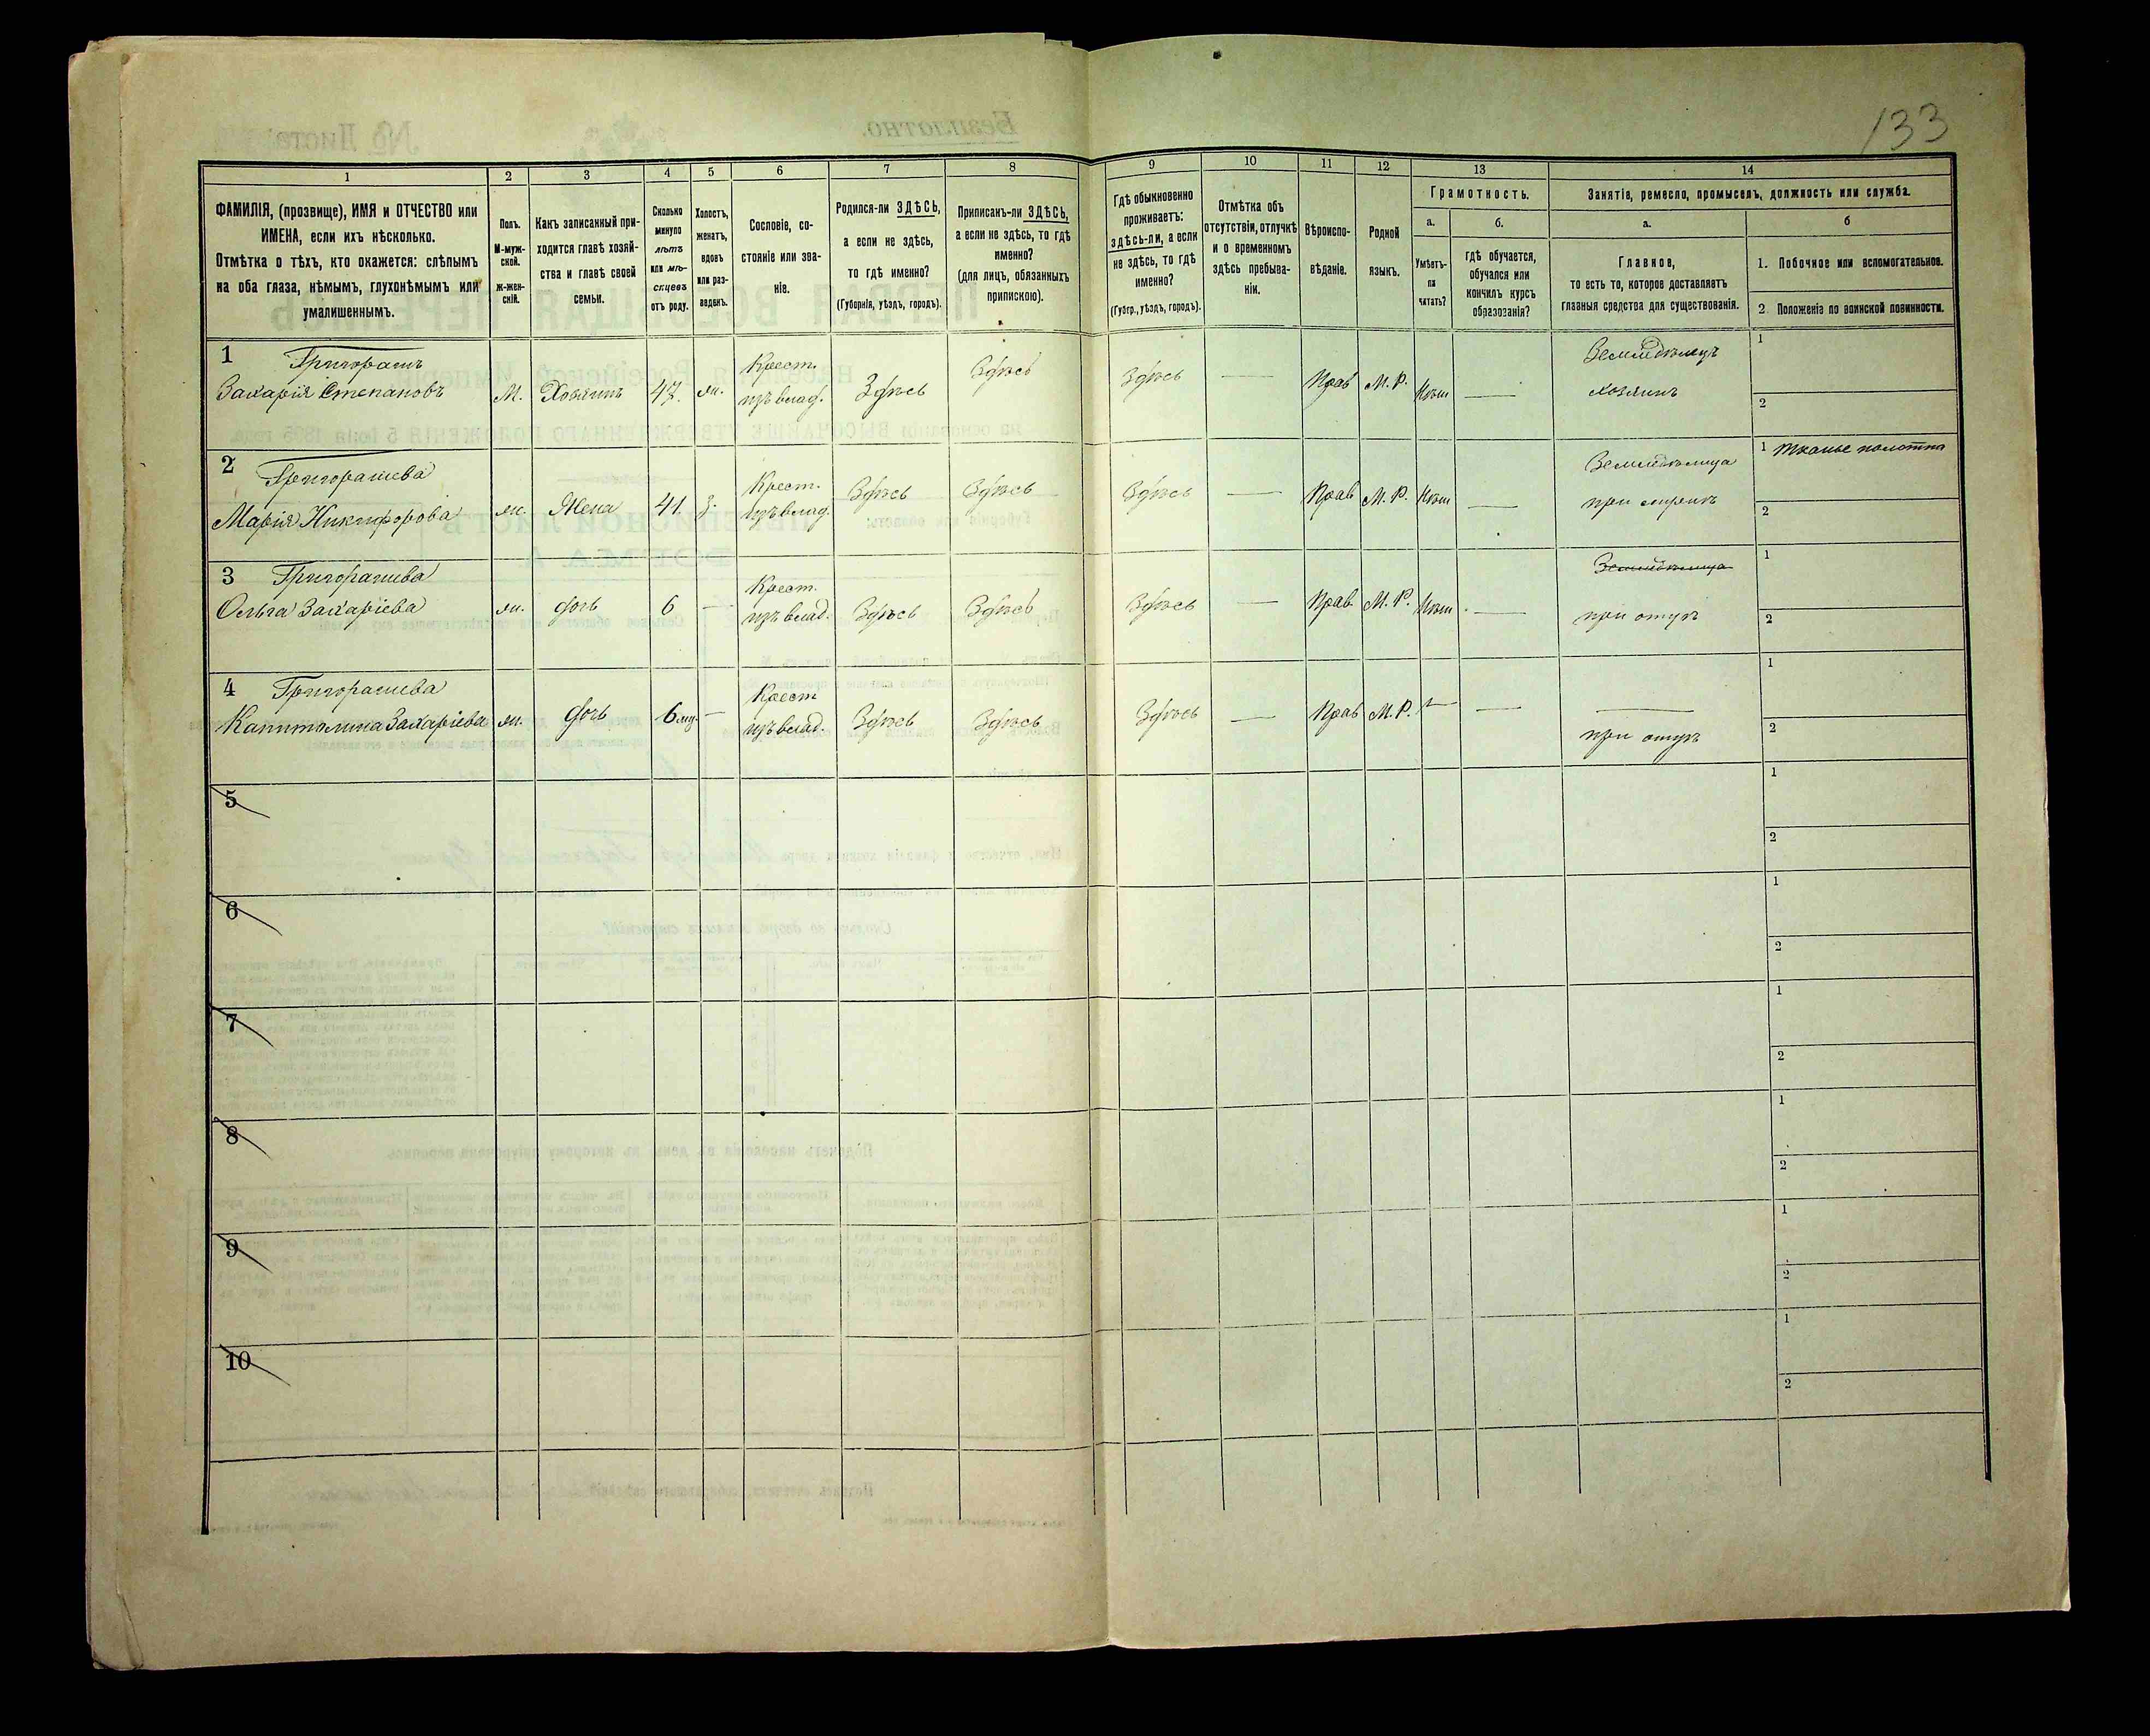 133
1 2 3 4 5 6 7 8 9 10 11 12 13 14
ФАМИЛІЯ, (прозвище), ИМЯ и ОТЧЕСТВО или
ИМЕНА, если ихъ нѣсколько.
Отмѣтка о тѣхъ, кто окажется: слѣпымъ
на оба глаза, нѣмымъ, глухонѣмымъ или
умалишеннымъ.
Полъ.
М-муж-
ской.
ж-жен-
скій.
Какъ записанный при-
ходится главѣ хозяй-
ства и главѣ своей
семьи.
Сколько
минуло
лѣтъ
или мѣ-
сяцевъ
отъ роду.
Холостъ,
женатъ,
вдовъ
или раз-
веденъ.
Сословіе, со-
стояніе или зва-
ніе.
Родился-ли ЗДѢСЬ,
а если не здѣсь,
то гдѣ именно?
(Губернія, уѣздъ, городъ).
Приписанъ-ли ЗДѢСЬ,
а если не здѣсь, то гдѣ
именно?
(для лицъ, обязанныхъ
припискою).
Гдѣ обыкновенно
проживаетъ:
здѣсь-ли, а если
не здѣсь, то гдѣ
именно?
(Губер., уѣздъ, городъ).
Отмѣтка объ
отсутствіи, отлучкѣ
и о временномъ
здѣсь пребыва-
ніи.
Вѣроиспо-
вѣданіе.
Родной
языкъ.
Грамотность.
а.
Умѣетъ-
ли
читать?
б.
гдѣ обучается,
обучался или
кончилъ курсъ
образованія?
Занятіе, ремесло, промыселъ, должность или служба.
а.
Главное,
то есть то, которое доставляетъ
главныя средства для существованія.
б
1. Побочное или вспомогательное.
2 Положеніе по воинской повинности.
1 Григорашъ
Захарія Степановъ
М. Хозяинъ 47. ж.
Крест.
изъ влад.
Здѣсь Здѣсь Здѣсь — Прав М. Р. Нѣт —
Земледѣлецъ
хозяинъ
1
2
2 Григорашева
Марія Никифорова
ж. Жена 41 з.
Крест.
изъ влад.
Здѣсь Здѣсь Здѣсь — Прав М. Р. Нѣт —
Земледѣлица
при мужѣ
1 Тканье полотна
2
3 Григорашева
Ольга Захаріева
ж. дочь 6 —
Крест.
изъ влад.
Здѣсь Здѣсь Здѣсь — Прав. М. Р. Нѣт —
Земледѣлица
при отцѣ
1
2
4 Григорашева
Капитолина Захаріева
ж. дочь 6 мц. —
Крест
изъ влад.
Здѣсь Здѣсь Здѣсь — Прав М. Р. — —
—
при отцѣ
1
2
5
1
2
6
1
2
7
1
2
8
1
2
9
1
2
10
1
2